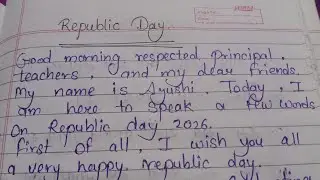 Republic Day.
Good morning respected principal.
teachers. and my dear friends.
My name is Ayushi. Today, I
am here to speak a few words
on Republic day 2026.
first of all, I wish you all
a very happy republic day.